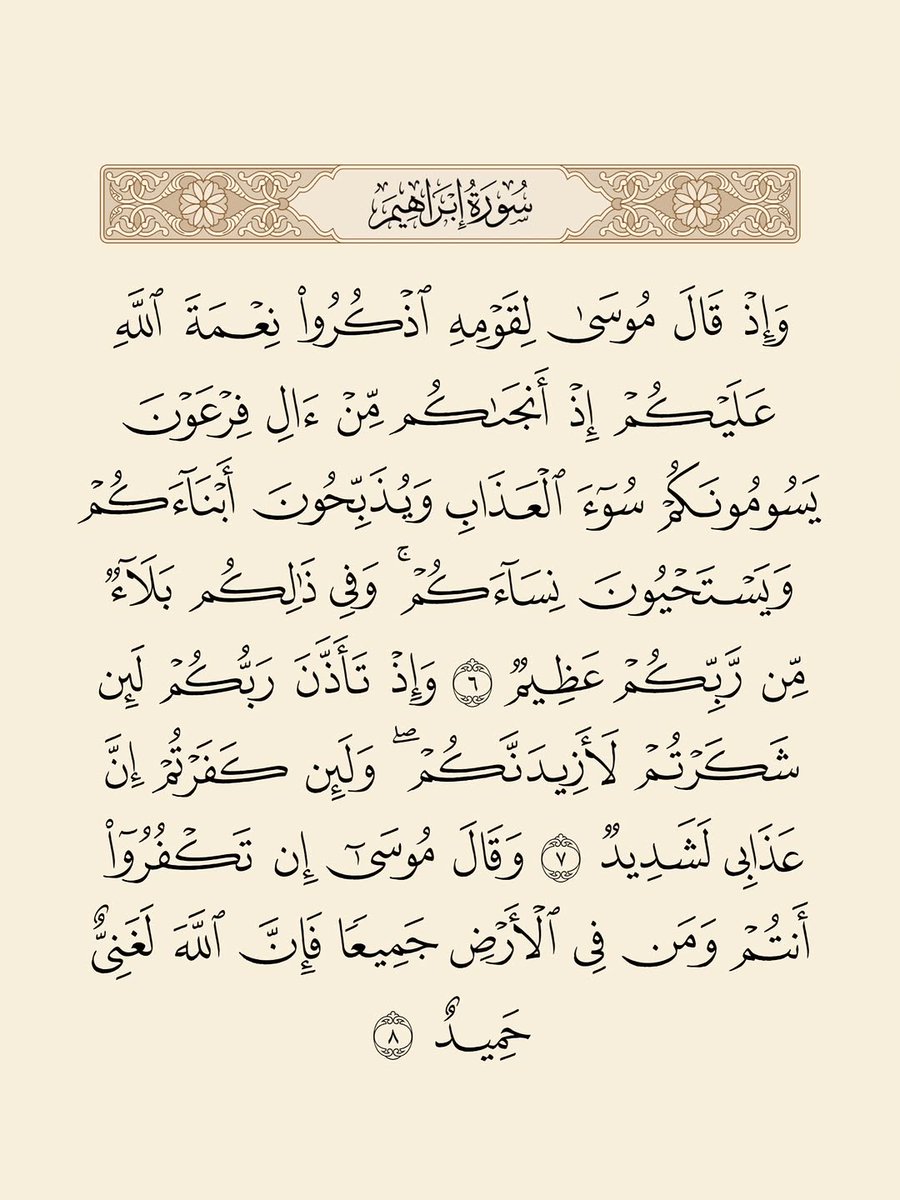 سُورَةُ إِبْرَاهِيمَ
وَإِذْ قَالَ مُوسَىٰ لِقَوْمِهِ ٱذْكُرُوا۟ نِعْمَةَ ٱللَّهِ
عَلَيْكُمْ إِذْ أَنجَىٰكُم مِّنْ ءَالِ فِرْعَوْنَ
يَسُومُونَكُمْ سُوٓءَ ٱلْعَذَابِ وَيُذَبِّحُونَ أَبْنَآءَكُمْ
وَيَسْتَحْيُونَ نِسَآءَكُمْ ۚ وَفِى ذَٰلِكُم بَلَآءٌ
مِّن رَّبِّكُمْ عَظِيمٌ ٦ وَإِذْ تَأَذَّنَ رَبُّكُمْ لَئِن
شَكَرْتُمْ لَأَزِيدَنَّكُمْ ۖ وَلَئِن كَفَرْتُمْ إِنَّ
عَذَابِى لَشَدِيدٌ ٧ وَقَالَ مُوسَىٰٓ إِن تَكْفُرُوٓا۟
أَنتُمْ وَمَن فِى ٱلْأَرْضِ جَمِيعًا فَإِنَّ ٱللَّهَ لَغَنِىٌّ
حَمِيدٌ ٨